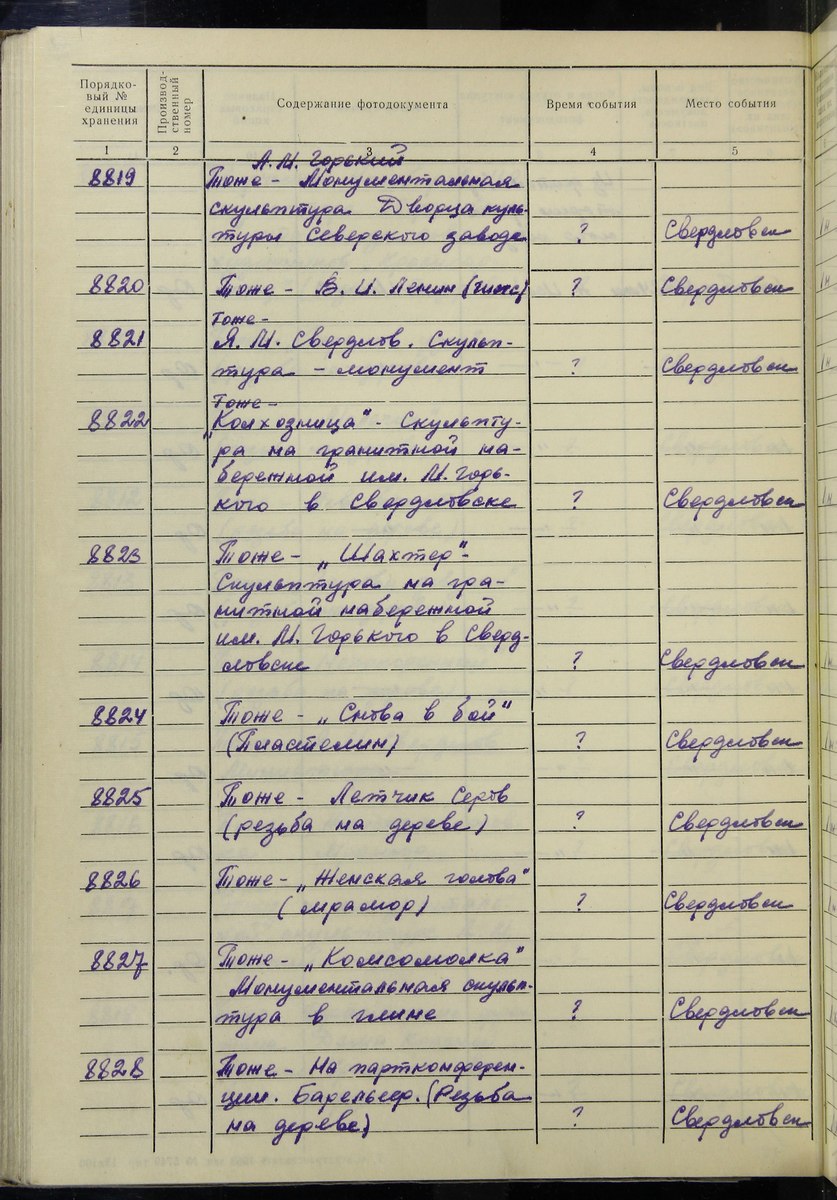 Порядко-
вый №
единицы
хранения
Производ-
ственный
номер
Содержание фотодокумента
Время события
Место события
1 2 3 4 5
А.М. Горский
8819 Тоже - Монументальная
скульптура Дворца куль-
туры Северского завода ? Свердловск
8820 Тоже - В. И. Ленин (гипс) ? Свердловск
Тоже -
8821 Я. М. Свердлов. Скульп-
тура - монумент ? Свердловск
Тоже -
8822 „Колхозница" - Скульпту-
ра на гранитной на-
бережной им. М. Горь-
кого в Свердловске ? Свердловск
8823 Тоже - „Шахтер" -
Скульптура на гра-
нитной набережной
им. М. Горького в Сверд-
ловске ? Свердловск
8824 Тоже - „Снова в бой"
(Пластелин) ? Свердловск
8825 Тоже - Летчик Серов
(резьба на дереве) ? Свердловск
8826 Тоже - „Женская голова"
(мрамор) ? Свердловск
8827 Тоже - „Комсомолка"
Монументальная скульп-
тура в глине ? Свердловск
8828 Тоже - На партконферен-
ции. Барельеф. (Резьба
на дереве) ? Свердловск